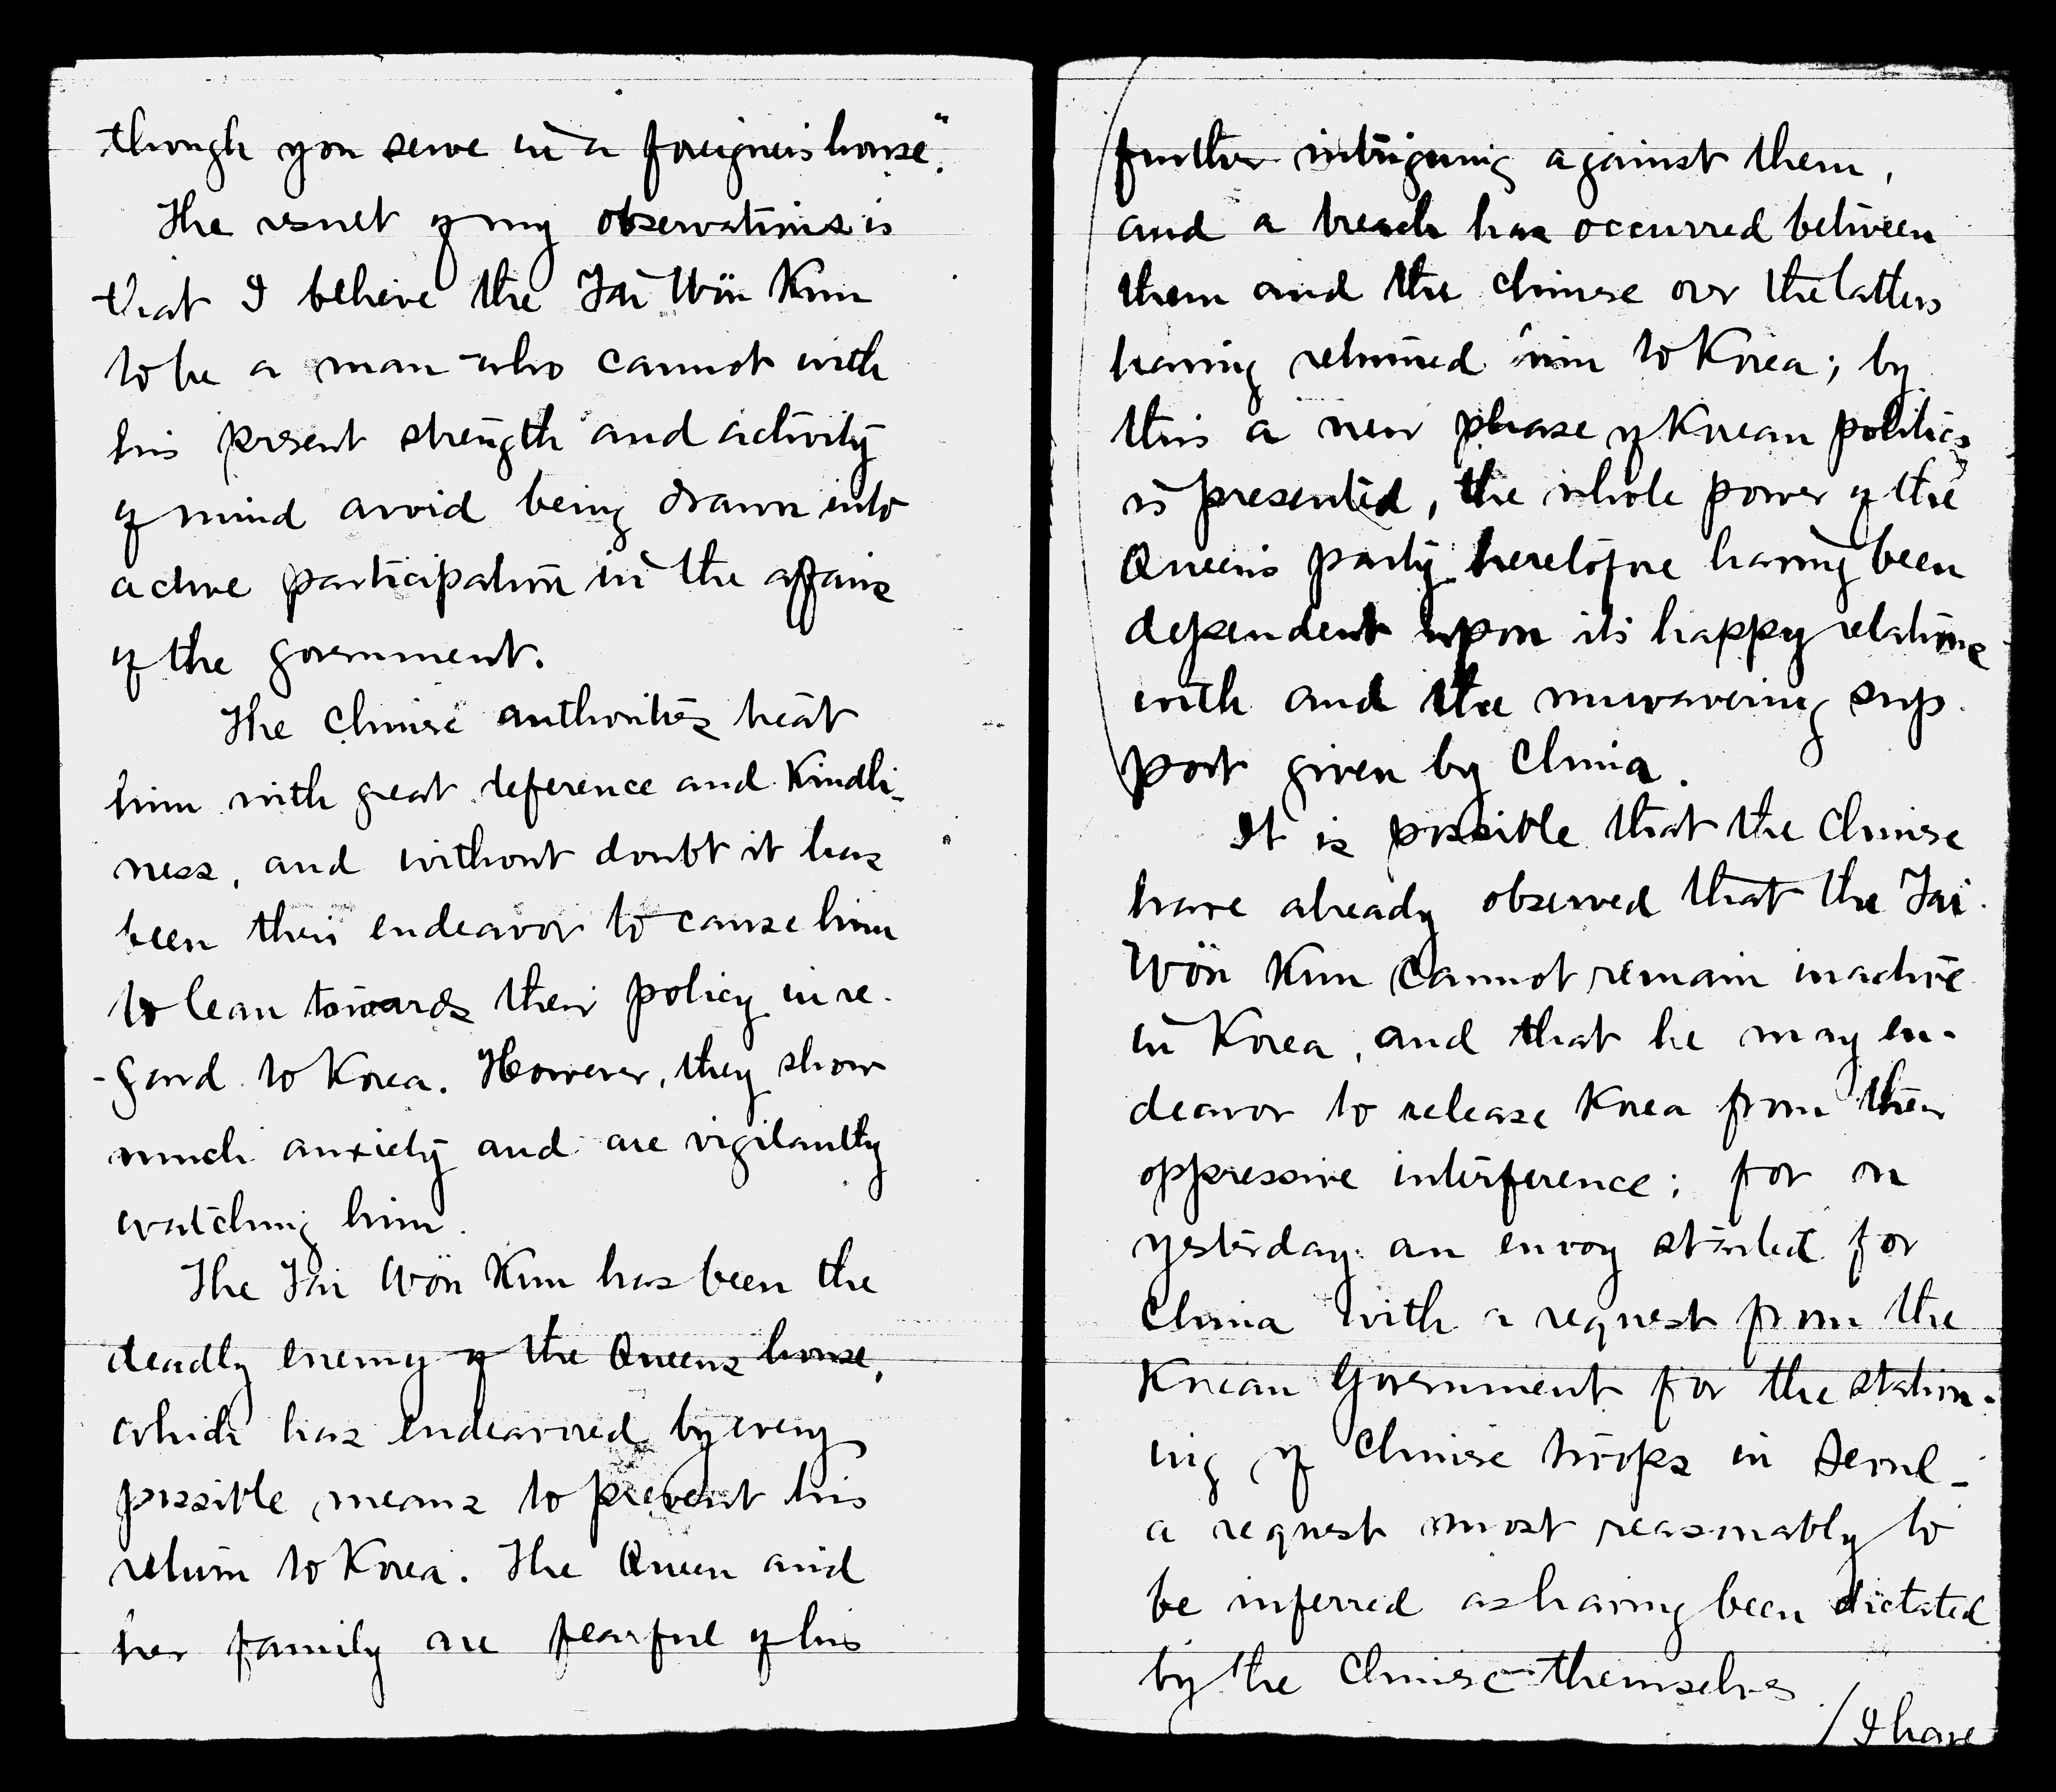 though you serve in a foreigner's house."
The result of my observations is
that I believe the Tai Wön Kun
to be a man who cannot with
his present strength and activity
of mind avoid being drawn into
active participation in the affairs
of the government.
The Chinese authorities treat
him with great deference and kindli-
ness, and without doubt it has
been their endeavor to cause him
to lean towards their policy in re-
-gard to Korea. However, they show
much anxiety and are vigilantly
watching him.
The Tai Wön Kun has been the
deadly enemy of the Queens house,
which has endeavored by every
possible means to prevent his
return to Korea. The Queen and
her family are fearful of his
further intriguing against them,
and a breach has occurred between
them and the Chinese over the latters
having returned him to Korea; by
this a new phase of Korean politics
is presented, the whole power of the
Queen's party heretofore having been
dependent upon its happy relations
with and the unwavering sup-
port given by China.
It is possible that the Chinese
have already observed that the Tai
Wön Kun cannot remain inactive
in Korea, and that he may en-
deavor to release Korea from their
oppressive interference; for on
yesterday an envoy started for
China with a request from the
Korean Government for the station-
ing of Chinese troops in Seoul -
a request most reasonably to
be inferred as having been dictated
by the Chinese themselves
/ I have